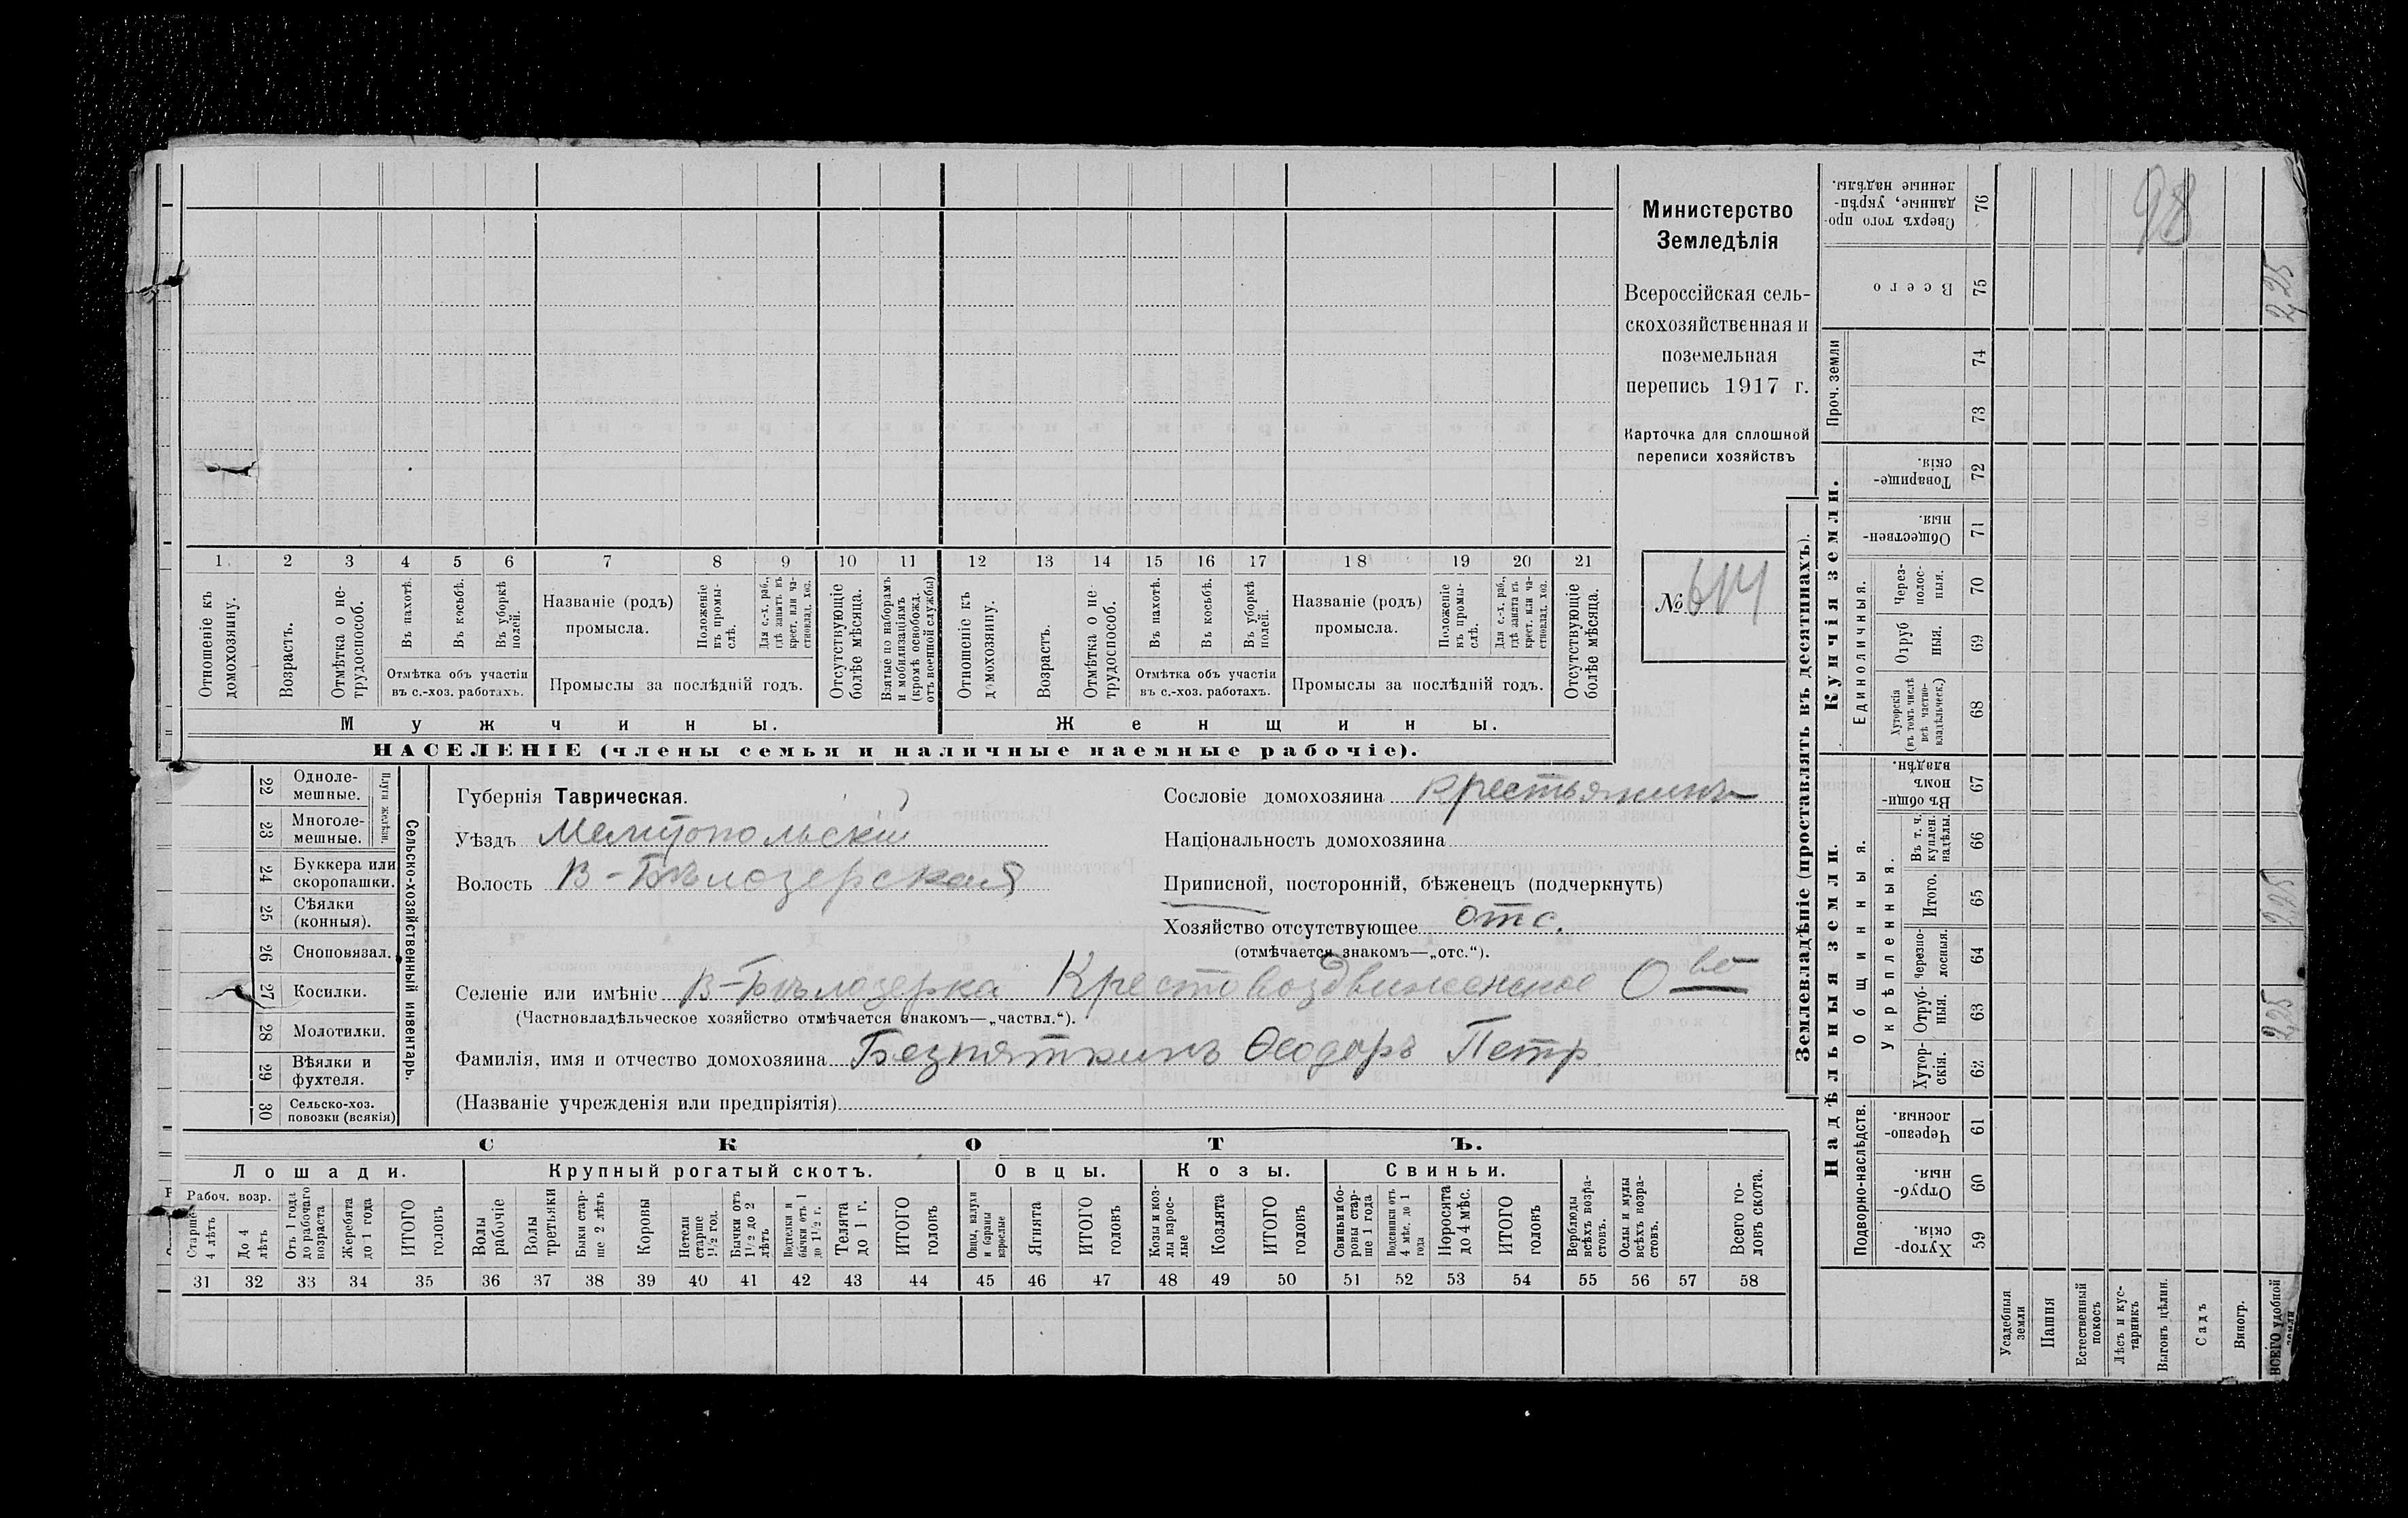 1 2 3 4 5 6 7 8 9 10 11 12 13 14 15 16 17 18 19 20 21
Отношеніе къ домохозяину.
Возрастъ.
Отмѣтка о не-трудоспособ.
Въ пахотѣ.
Въ косьбѣ.
Въ уборкѣ полей.
Отмѣтка объ участіи
въ с.-хоз. работахъ.
Названіе (родъ)
промысла.
Положеніе въ промы-слѣ.
Для с.-х. раб., гдѣ занятъ въ крест. или ча-стновлад. хоз.
Промыслы за послѣдній годъ.
Отсутствующіе болѣе мѣсяца.
Взятые по наборамъ и мобилизаціямъ (кромѣ освобожд. отъ военной службы)
Отношеніе къ домохозяину.
Возрастъ.
Отмѣтка о не-трудоспособ.
Въ пахотѣ.
Въ косьбѣ.
Въ уборкѣ полей.
Отмѣтка объ участіи
въ с.-хоз. работахъ.
Названіе (родъ)
промысла.
Положеніе въ промы-слѣ.
Для с.-х. раб., гдѣ занята въ крест. или ча-стновлад. хоз.
Промыслы за послѣдній годъ.
Отсутствующіе болѣе мѣсяца.
Мужчины.
Женщины.
НАСЕЛЕНІЕ (члены семьи и наличные наемные рабочіе).
Министерство
Земледѣлія
Всероссійская сель-
скохозяйственная и
поземельная
перепись 1917 г.
Карточка для сплошной
переписи хозяйствъ
№ 614
Сельско-хозяйственный инвентарь.
Плуги желѣзн.
22 Одноле-
мешные.
23 Многоле-
мешные.
24 Буккера или
скоропашки.
25 Сѣялки
(конныя).
26 Сноповязал.
27 Косилки.
28 Молотилки.
29 Вѣялки и
фухтеля.
30 Сельско-хоз.
повозки (всякія)
Губернія Таврическая.
Уѣздъ Мелитопольскій
Волость В-Бѣлозерская
Сословіе домохозяина крестьянинъ
Національность домохозяина
Приписной, посторонній, бѣженецъ (подчеркнуть)
Хозяйство отсутствующее отс.
(отмѣчается знакомъ—„отс.“).
Селеніе или имѣніе В-Бѣлозерка Крестовоздвиженское О во
(Частновладѣльческое хозяйство отмѣчается знакомъ—„частвл.“).
Фамилія, имя и отчество домохозяина Безпяткинъ Ѳеодоръ Петр.
(Названіе учрежденія или предпріятія)
СКОТЪ.
Лошади. Крупный рогатый скотъ. Овцы. Козы. Свиньи.
Рабоч. возр.
Старше 4 лѣтъ
До 4 лѣтъ
Отъ 1 года до рабочаго возраста
Жеребята до 1 года
ИТОГО головъ
Волы рабочіе
Волы третьяки
Быки стар-ше 2 лѣтъ
Коровы
Нетели старше 1½ год.
Бычки отъ 1½ до 2 лѣтъ
Подтелки и бычки отъ 1 до 1½ г.
Телята до 1 г.
ИТОГО головъ
Овцы, валухи и бараны взрослые
Ягнята
ИТОГО головъ
Козы и коз-лы взрос-лые
Козлята
ИТОГО головъ
Свиньи и бо-ровы стар-ше 1 года
Подсвинки отъ 4 мѣс. до 1 года
Поросята до 4 мѣс.
ИТОГО головъ
Верблюды всѣхъ возра-стовъ.
Ослы и мулы всѣхъ возра-стовъ.
Всего го-ловъ скота.
31 32 33 34 35 36 37 38 39 40 41 42 43 44 45 46 47 48 49 50 51 52 53 54 55 56 57 58
Землевладѣніе (проставлять въ десятинахъ).
Купчія земли.
Надѣльныя земли.
Сверхъ того про-данные, укрѣп-ленные надѣлы. 76
98
Всего 75
2,25
Проч. земли
74
73
Товарище-скія. 72
Обществен-ныя. 71
Единоличныя.
Через-полос-ныя. 70
Отруб ныя. 69
Хуторскія (въ томъ числѣ всѣ частно-владѣльческ.) 68
Общинныя.
Въ общи-номъ владѣн. 67
Укрѣпленныя.
Въ т. ч. куплен. надѣлы. 66
Итого. 65
2,25
Черезпо-лосныя. 64
Отруб-ныя. 63
2,25
Хутор-скія. 62
Подворно-наслѣдств.
Черезпо-лосныя. 61
Отруб-ныя. 60
Хутор-скія. 59
Усадебныя земли
Пашня
Естественный покосъ
Лѣсъ и кус-тарникъ
Выгонъ цѣлин.
Садъ
Виногр.
ВСЕГО удобной земли